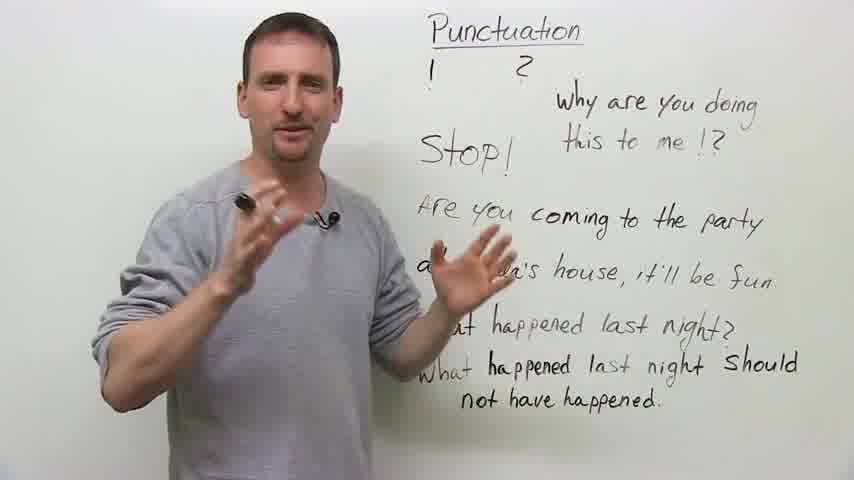 Punctuation
! ?
Why are you doing
this to me!?
Stop!
Are you coming to the party
house, it'll be fun
happened last night?
What happened last night should
not have happened.